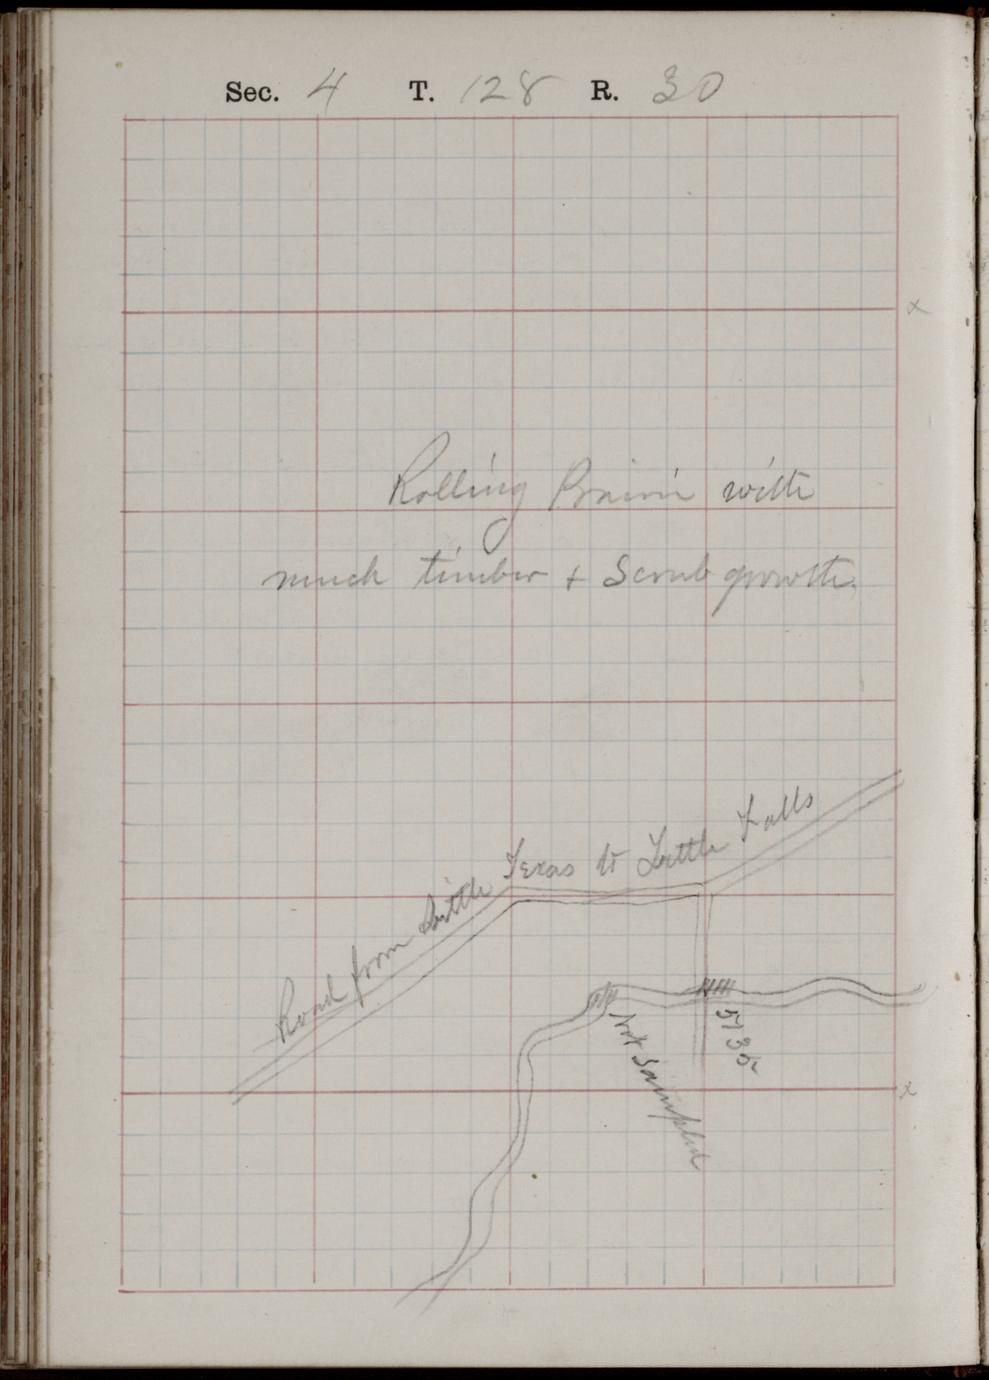 Sec. 4 T. 128 R. 30
x
Rolling Prairie with
much timber + Scrub growth.
Road from Little Texas to Little Falls
5135
Not Sampled
x